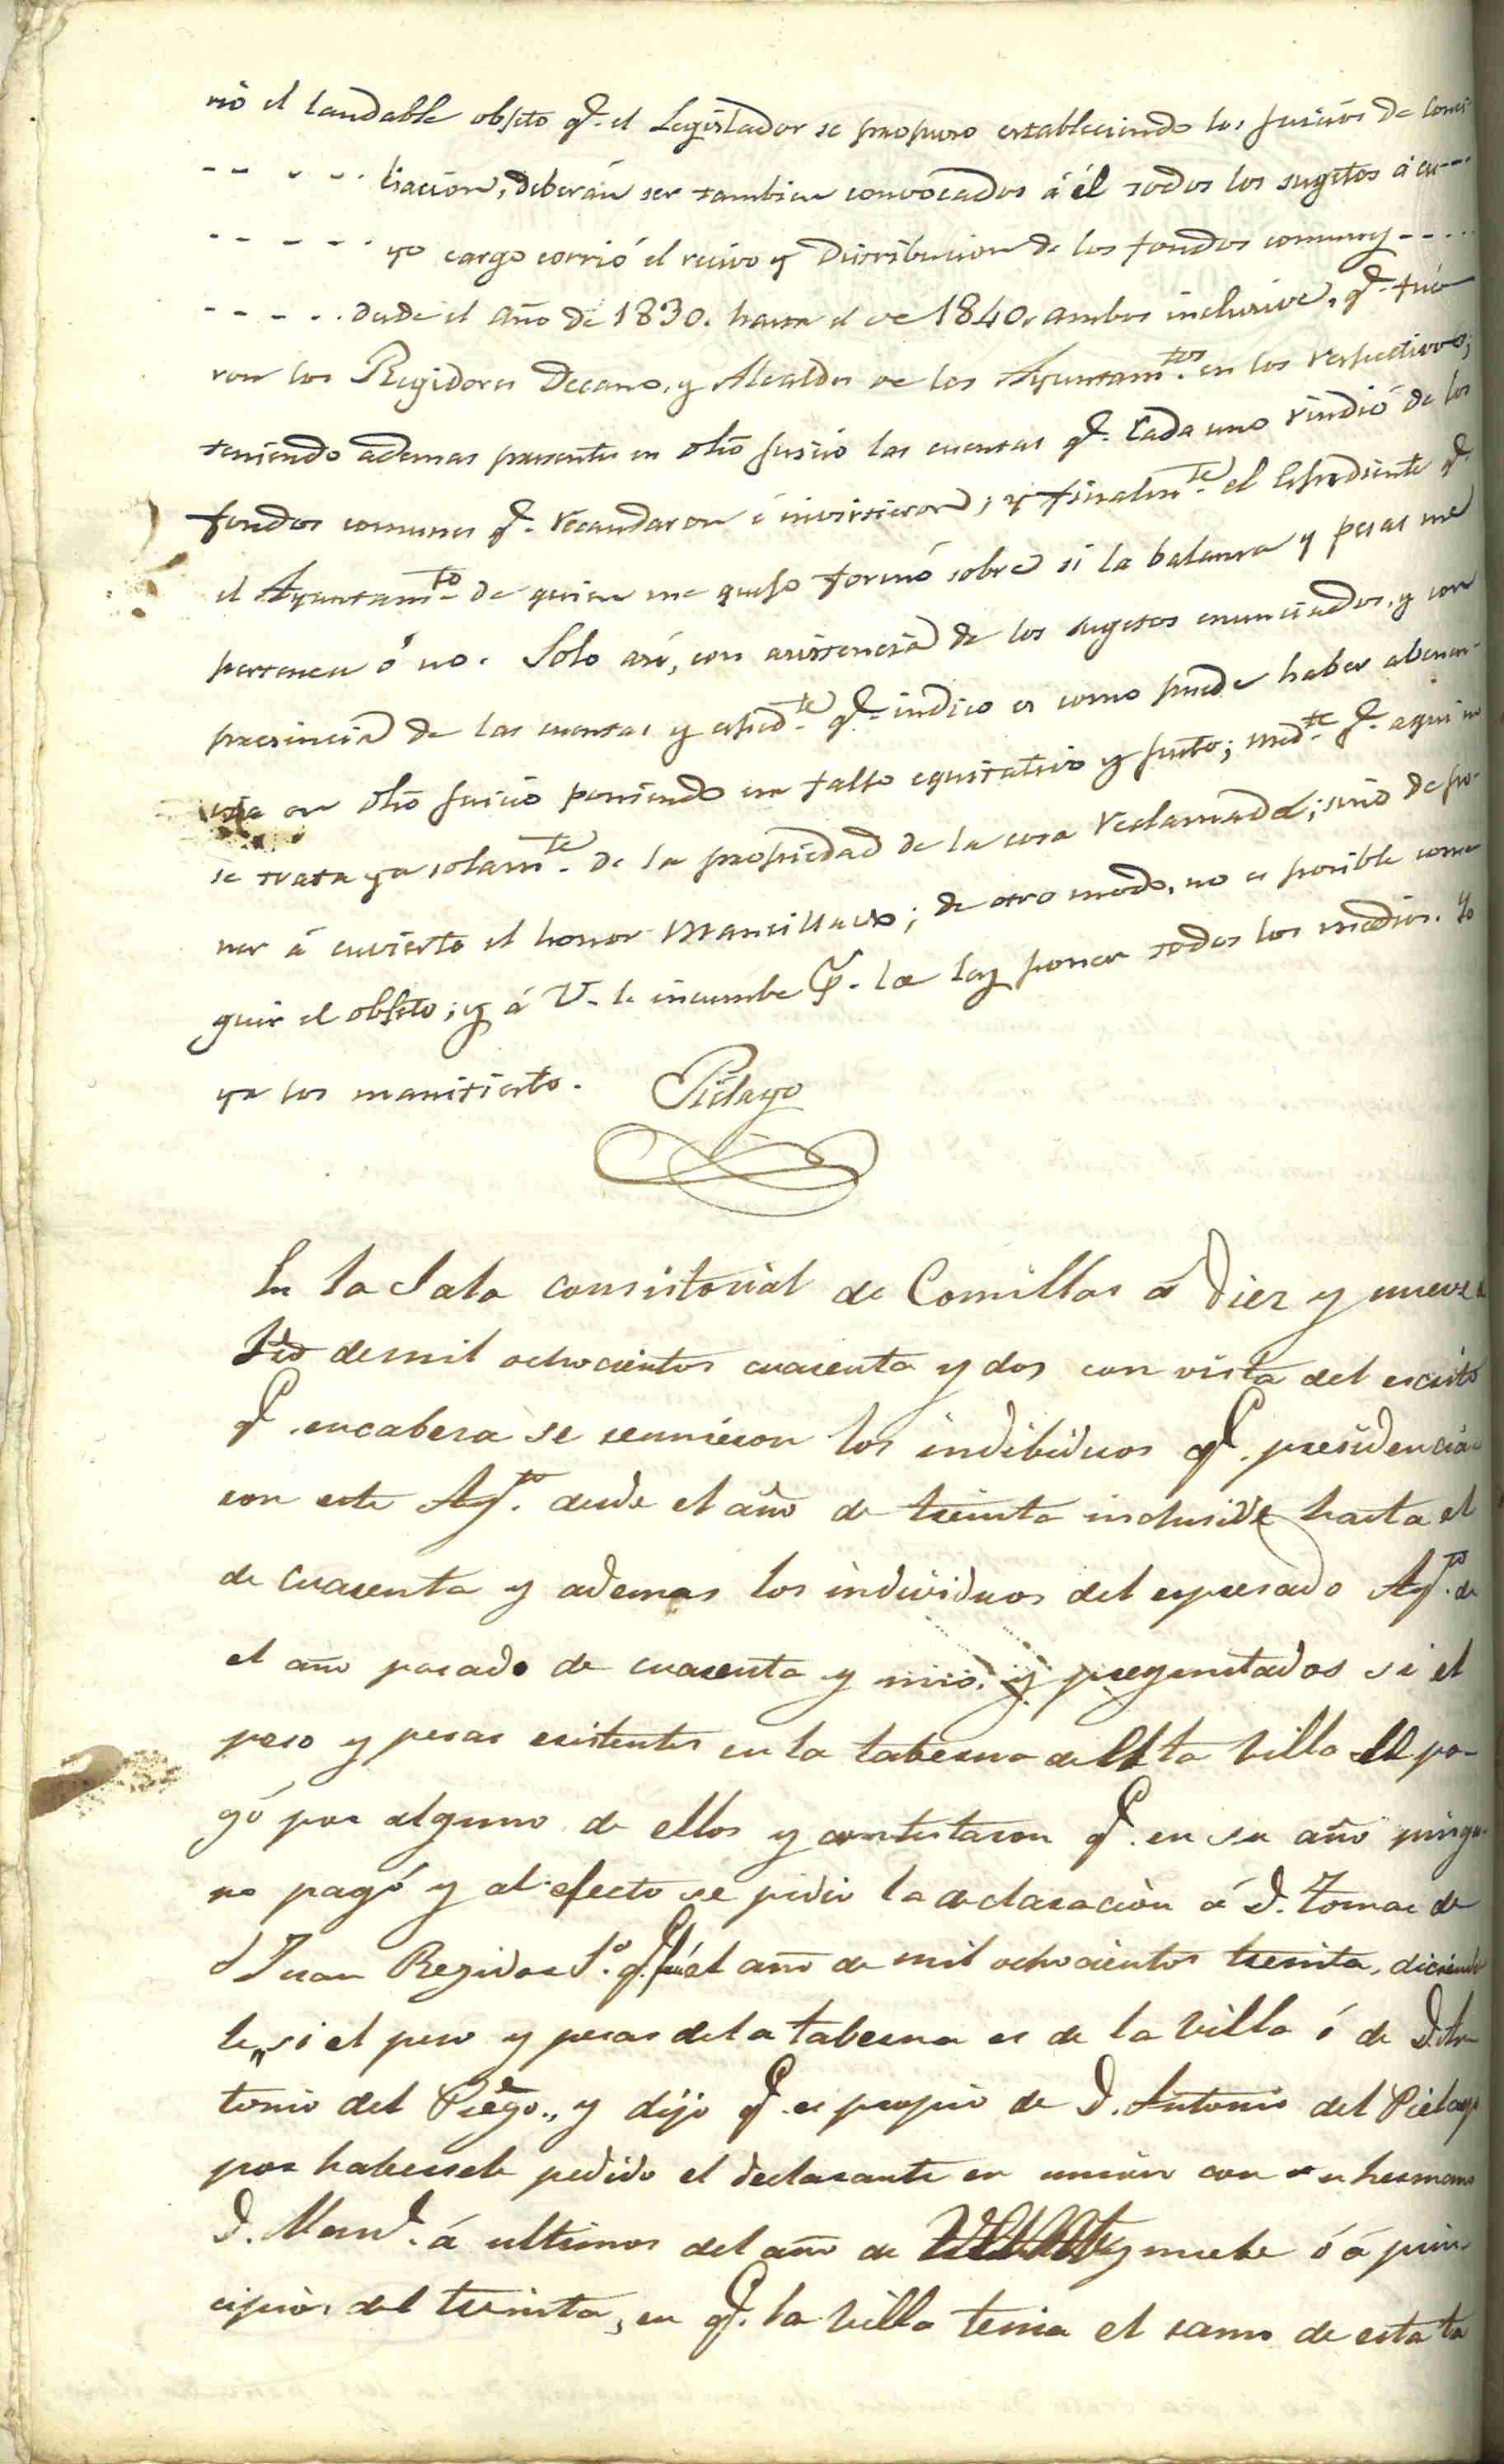 rió el laudable objeto q.e el Legislador se propuso estableciendo los juicios de Conci-
- - - - - liacion, deberán ser tambien convocados á él todos los sugetos á cu- - -
- - - - - yo cargo corrió el recivo y distribucion de los fondos comunes - - - -
- - - - - desde el año de 1830. hasta el de 1840, ambos inclusive, q.e fue-
ron los Regidores Decanos, y Alcaldes de los Ayuntam.tos en los respectivos;
teniendo ademas presentes en dho juicio las cuentas q.e cada uno rindió de los
fondos comunes q.e recaudaron é invirtieron; y finalm.te el Espediente q.e
el Ayuntam.to de quien me quejo formó sobre si la balanza y pesas me
pertenecen ó no. Solo asi, con asistencia de los sugetos enunciados, y con
presencia de las cuentas y esped.te q.e indico es como puede haber abenen-
cia en dho juicio poniendo un fallo equitativo y justo; med.te q.e aqui no
se trata ya solam.te de la propiedad de la cosa reclamada; sino de po-
ner á cuvierto el honor mancillado; de otro modo, no es posible conse-
guir el objeto; y á V. le incumbe p.r la ley poner todos los medios. Yo
ya los manifiesto. Piélago
En la Sala consistorial de Comillas á diez y nueve de
de mil ochocientos cuarenta y dos con vista del escrito
q.e encabeza se reunieron los indibiduos q.e presidencia-
ron este Ay.to desde el año de treinta inclusive hasta el
de cuarenta y ademas los individuos del espresado Ay.to de
el año pasado de cuarenta y uno. y preguntados si el
peso y pesas esistentes en la taberna de esta Villa se pa-
gó por alguno de ellos y contestaron q.e en su año ningu-
no pagó y al efecto se pidio la declaracion á D. Tomas de
S Juan Regidor 1.º q.e fué el año de mil ochocientos treinta, diciendo
le „si el peso y pesas de la taberna es de la Villa ó de D. An-
tonio del Piego„ y dijo q.e es propio de D. Antonio del Pielago
por haberselo pedido el declarante en union con su hermano
D. Man.l á ultimos del año de y nuebe ó á prin-
cipios del treinta, en q.e la Villa tenia el ramo de esta ta